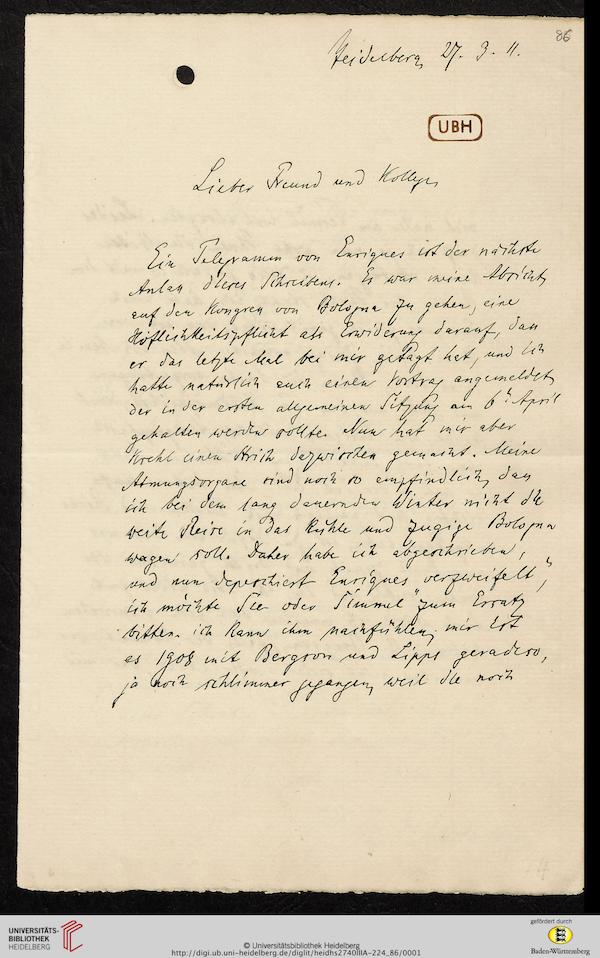 86
Heidelberg 27. 3. 11.
UBH
Lieber Freund und Kollege,
Ein Telegramm von Enriques ist der nächste
Anlaß dieses Schreibens. Es war meine Absicht,
auf den Kongreß von Bologna zu gehen, eine
Höflichkeitspflicht als Erwiderung darauf, daß
er das letzte Mal bei mir getagt hat, und ich
hatte natürlich auch einen Vortrag angemeldet,
der in der ersten allgemeinen Sitzung am 6t. April
gehalten werden sollte. Nun hat mir aber
Krehl einen Strich dazwischen gemacht. Meine
Atmungsorgane sind noch so empfindlich, daß
ich bei dem lang dauernden Winter nicht die
weite Reise in das kühle und zugige Bologna
wagen soll. Daher habe ich abgeschrieben,
und nun depeschiert Enriques „verzweifelt“,
ich möchte Sie oder Simmel zum Ersatz
bitten. ich kann ihm nachfühlen, mir ist
es 1908 mit Bergson und Lipps geradeso,
ja noch schlimmer gegangen, weil die noch
UNIVERSITÄTS-
BIBLIOTHEK
HEIDELBERG
© Universitätsbibliothek Heidelberg
http://digi.ub.uni-heidelberg.de/diglit/heidhs2740IIIA-224_86/0001
gefördert durch
Baden-Württemberg